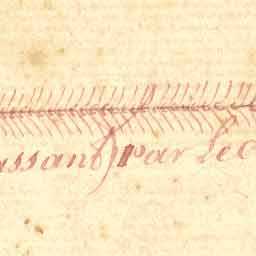 assant par Lec